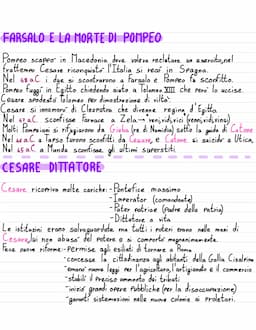 FARSALO E LA MORTE DI POMPEO
Pompeo scappo' in Macedonia dove voleva reclutare un esercito, nel
frattempo Cesare riconquistò l'Italia si recò in Spagna.
Nel 48 a.C i due si scontrarono a Farsalo e Pompeo fu sconfitto.
Pompeo fuggì in Egitto chiedendo aiuto a Tolomeo XIII che però lo uccise.
Cesare spodestò Tolomeo per dimostrazione di viltà.
Cesare si innamorò di Cleopatra che divenne regina d'Egitto.
Nel 47 a.C sconfisse Farnace a Zela → veni, vidi, vici (venni, vidi, vinsi)
Molti Pompeiani si rifugiarono da Giuba (re di Numidia) sotto la guida di Catone
Nel 46 a.C a Tapso furono sconfitti da Cesare, e Catone si suicidò a Utica.
Nel 45 a.C a Munda sconfisse gli ultimi superstiti
CESARE DITTATORE
Cesare ricopriva molte cariche: - Pontefice massimo
- Imperator (comandante)
- Pater patriae (padre della patria)
- Dittatore a vita
Le istituzioni erano salvaguardate ma tutti i poteri erano nelle mani di
Cesare, lui non abusò del potere e si comportò magnanimamente.
Fece nuove riforme: - Permise agli esiliati di tornare a Roma
- concesse la cittadinanza agli abitanti della Gallia Cisalpina
- emanò nuove leggi per l'agricoltura, l'artigianato e il commercio
- stabilì il preciso ammonto dei tributi
- iniziò grandi opere pubbliche (per la disoccupazione)
- garantì sistemazioni nelle nuove colonie ai proletari.